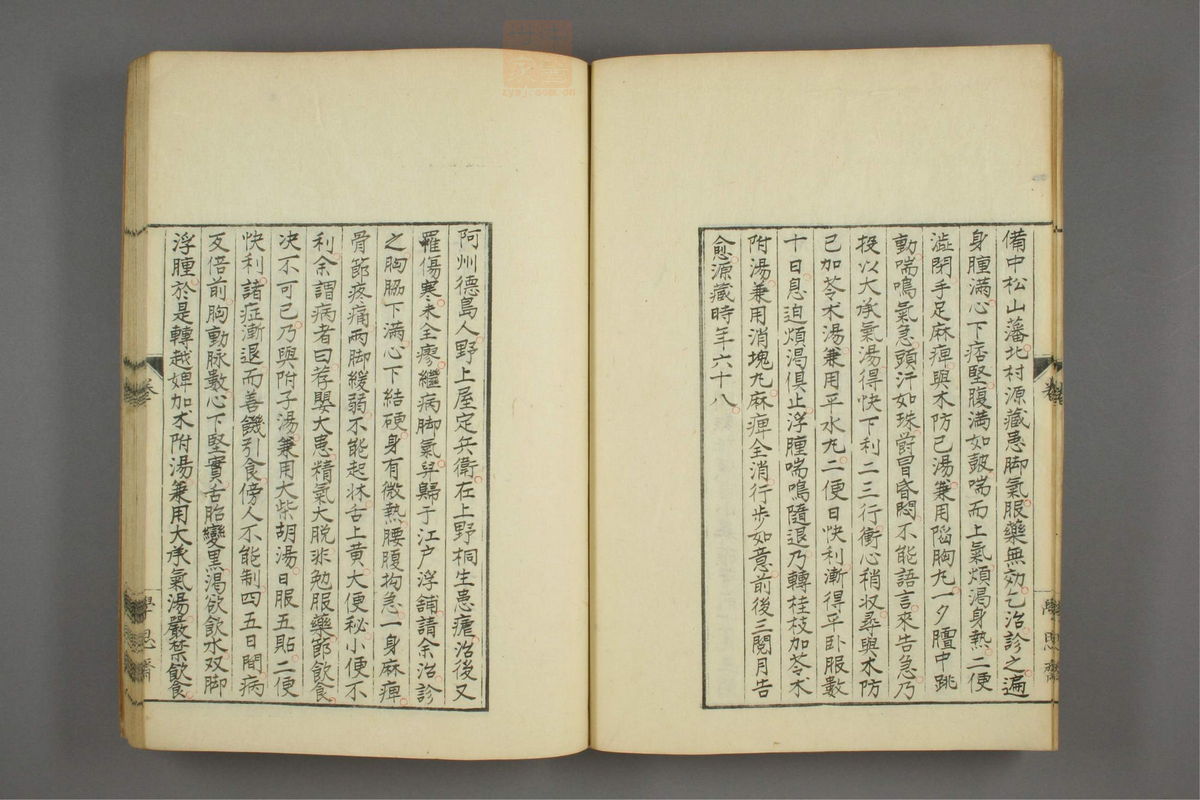 備中松山藩北村源藏患脚氣服藥無効乞治診之遍
身腫滿心下痞堅腹滿如皷喘而上氣煩渴身熱二便
澁閉手足麻痺與木防己湯兼用陷胸丸一夕膻中跳
動喘鳴氣急頭汗如珠欝冒昏悶不能語言來告急乃
投以大承氣湯得快下利二三行衝心稍収尋與木防
已加苓朮湯兼用平水丸二便日快利漸得平卧服數
十日息迫煩渴俱止浮腫喘鳴隨退乃轉桂枝加苓朮
附湯兼用消塊丸麻痺全消行步如意前後三閱月告
愈源藏時年六十八
阿州德島人野上屋定兵衛在上野桐生患瘧治後又
罹傷寒未全瘳繼病脚氣舁歸于江户浮舖請余治診
之胸脇下滿心下結硬身有微熱腰腹拘急一身麻痺
骨節疼痛兩脚緩弱不能起牀舌上黃大便秘小便不
利余謂病者曰荐嬰大患精氣大脫非勉服藥節飲食
决不可已乃與附子湯兼用大柴胡湯日服五貼二便
快利諸症漸退而善饑引食傍人不能制四五日間病
反倍前胸動脉數心下堅實舌胎變黑渴欲飲水双脚
浮腫於是轉越婢加朮附湯兼用大承氣湯嚴禁飲食
學思齋